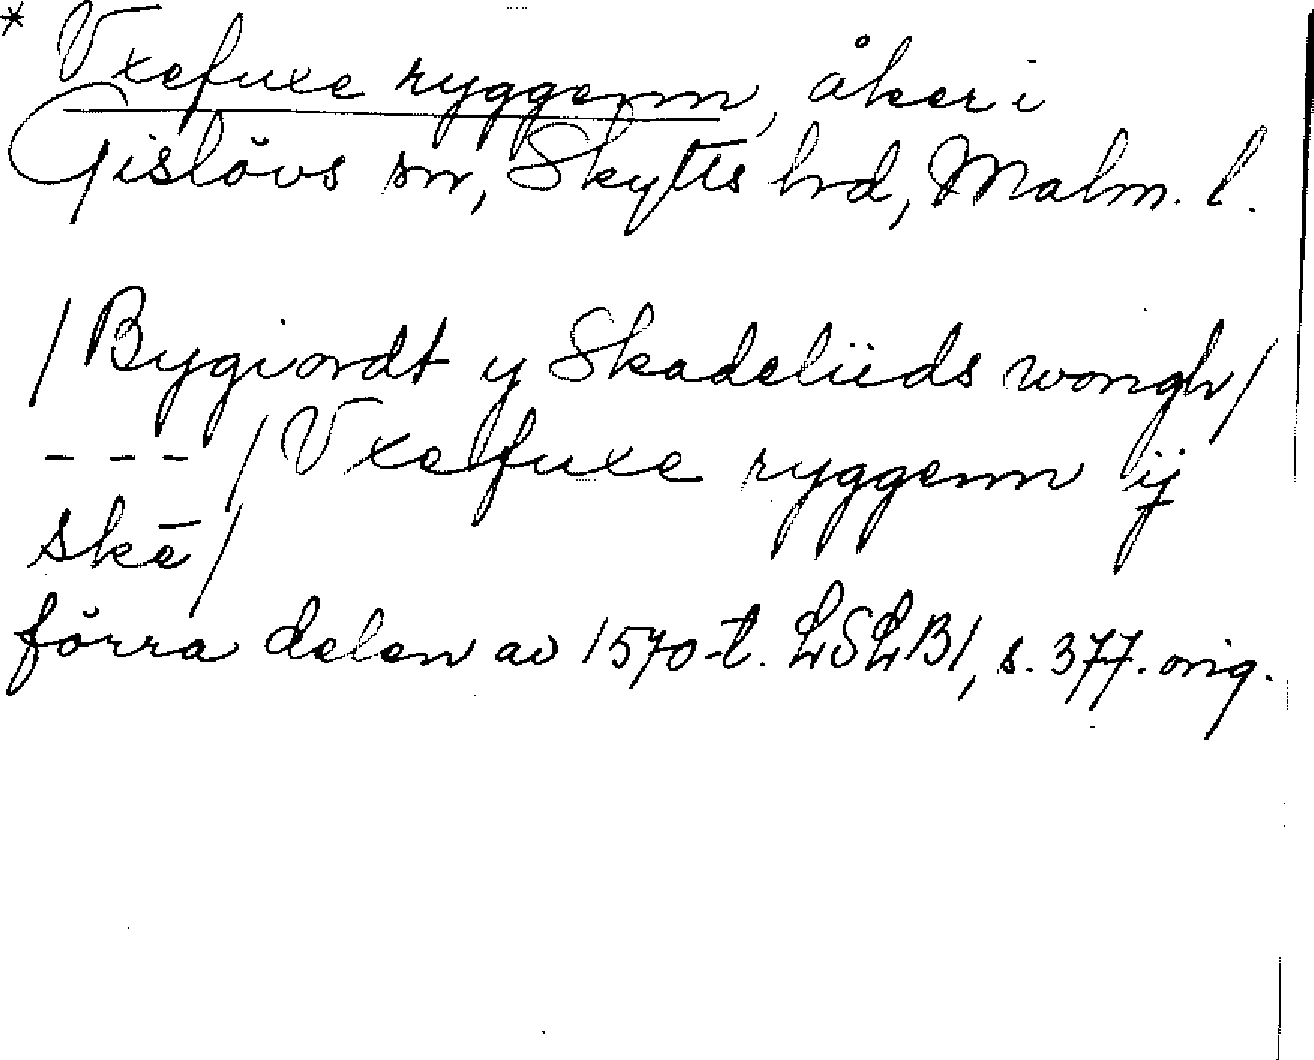 * Vxefuxe ryggenn, åker i
Gislövs sn, Skytts hrd, Malm. l.
/Bygiordt y Skadeliids wongh/
- - - /Vxefuxe ryggenn ij
skē/
förra delen av 1570-t. LSLB1, s. 377. orig.